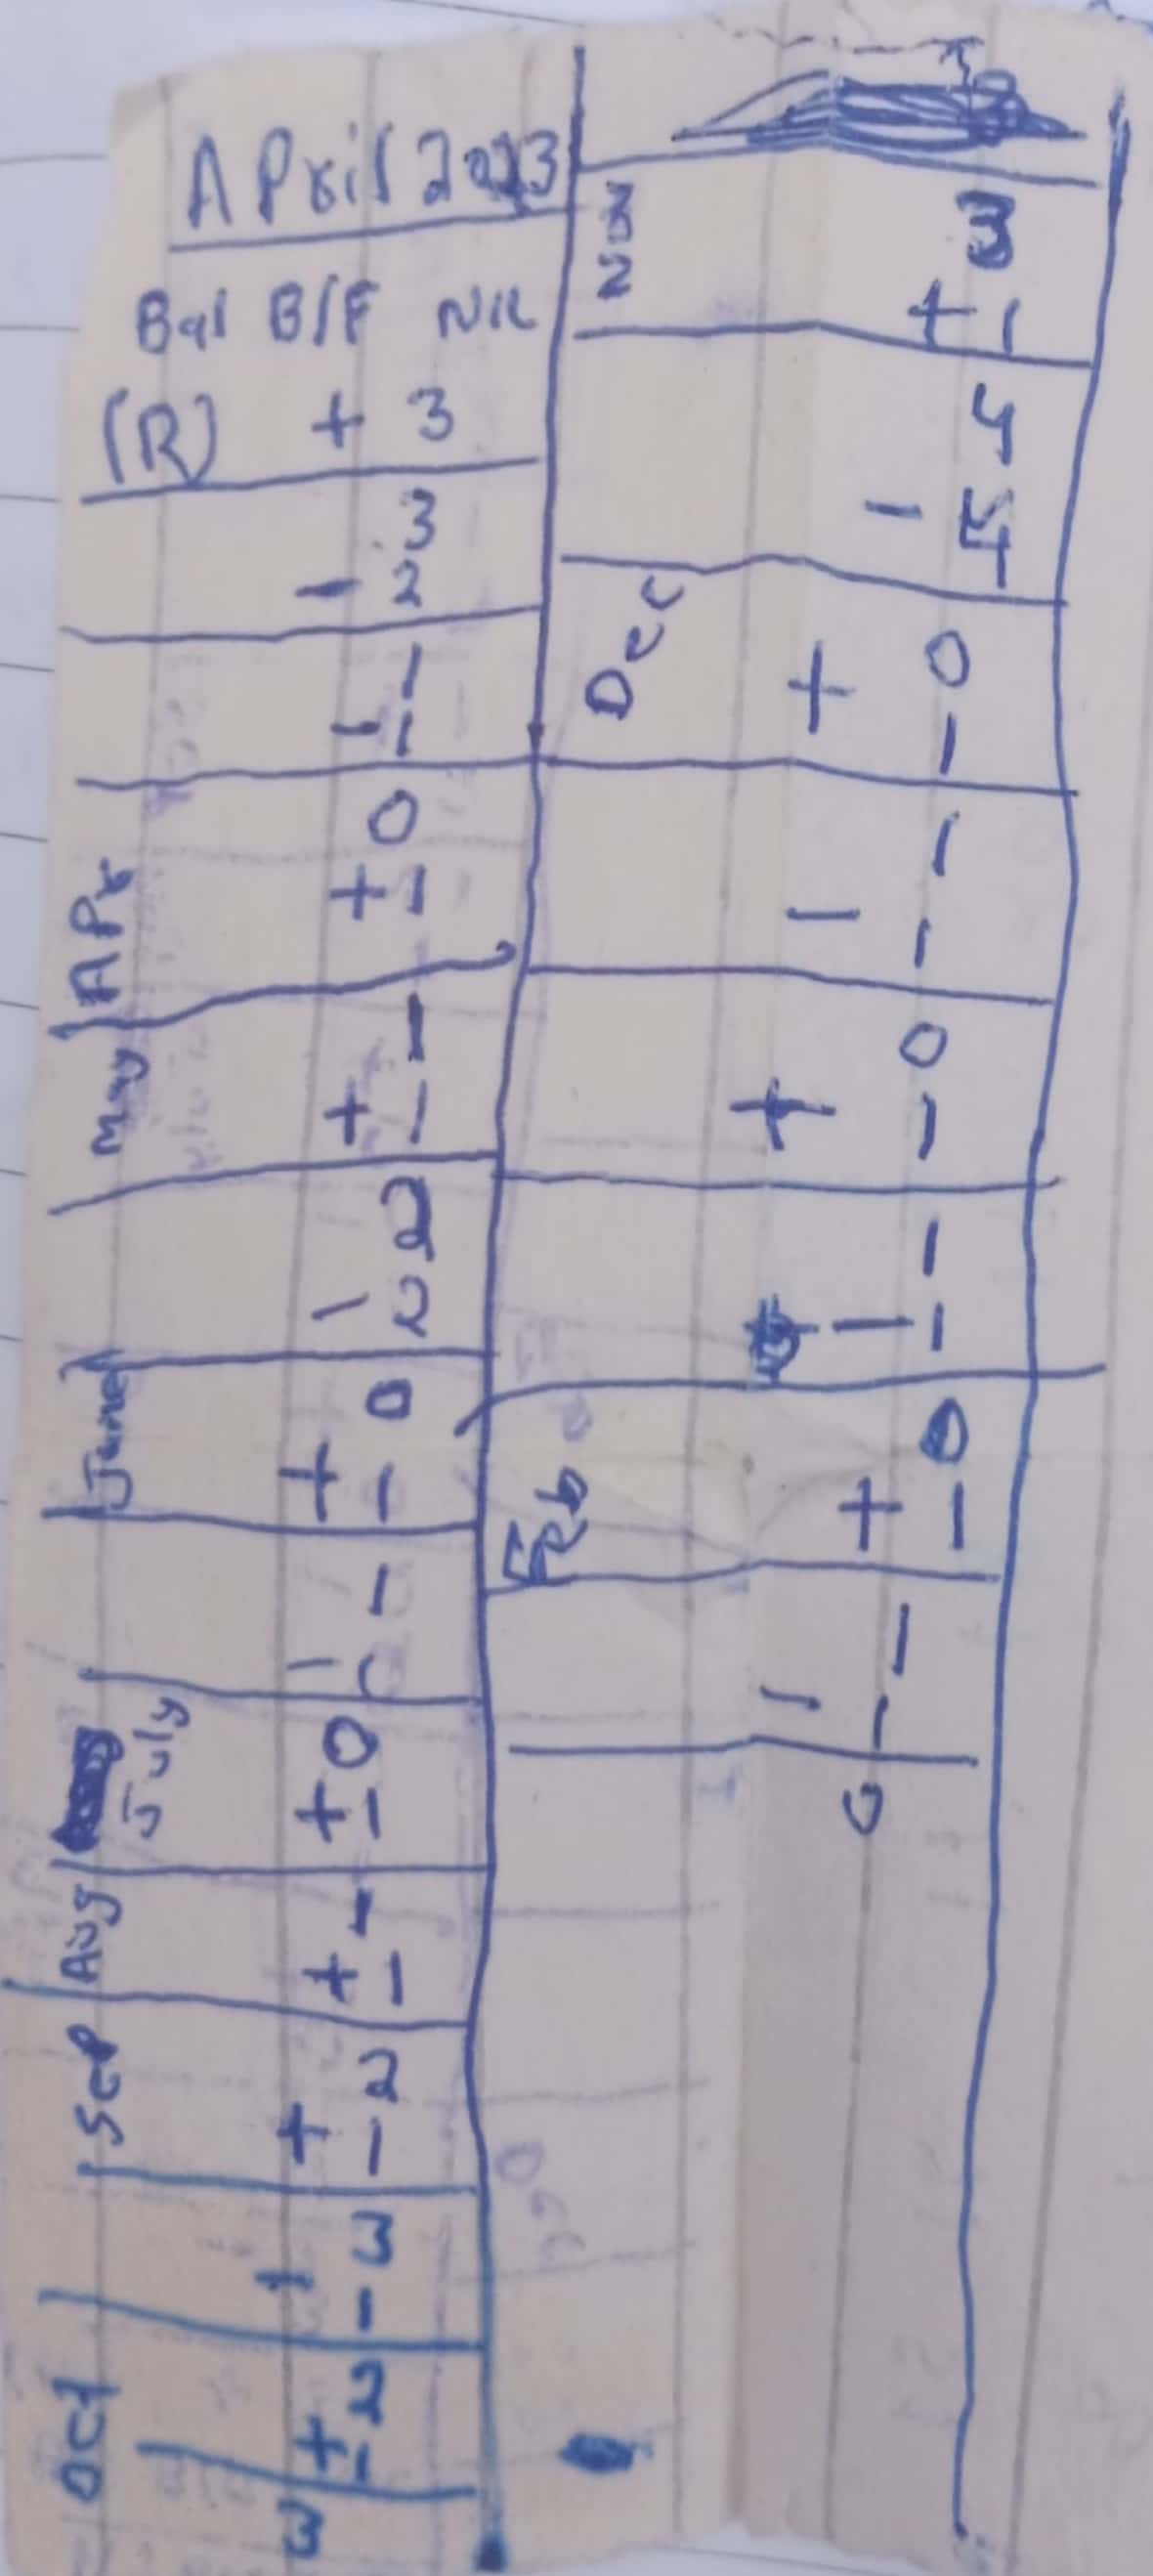 April 2023
Bal B/F Nil
(R) + 3
3
- 2
1
- 1
0
Apr + 1
1
May + 1
2
- 2
0
June + 1
1
- 1
0
July + 1
1
Aug + 1
2
Sep + 1
3
- 1
2
Oct + 1
3
3
+ 1
4
- 4
0
Dec + 1
1
- 1
0
+ 1
1
- 1
0
Feb + 1
1
- 1
0